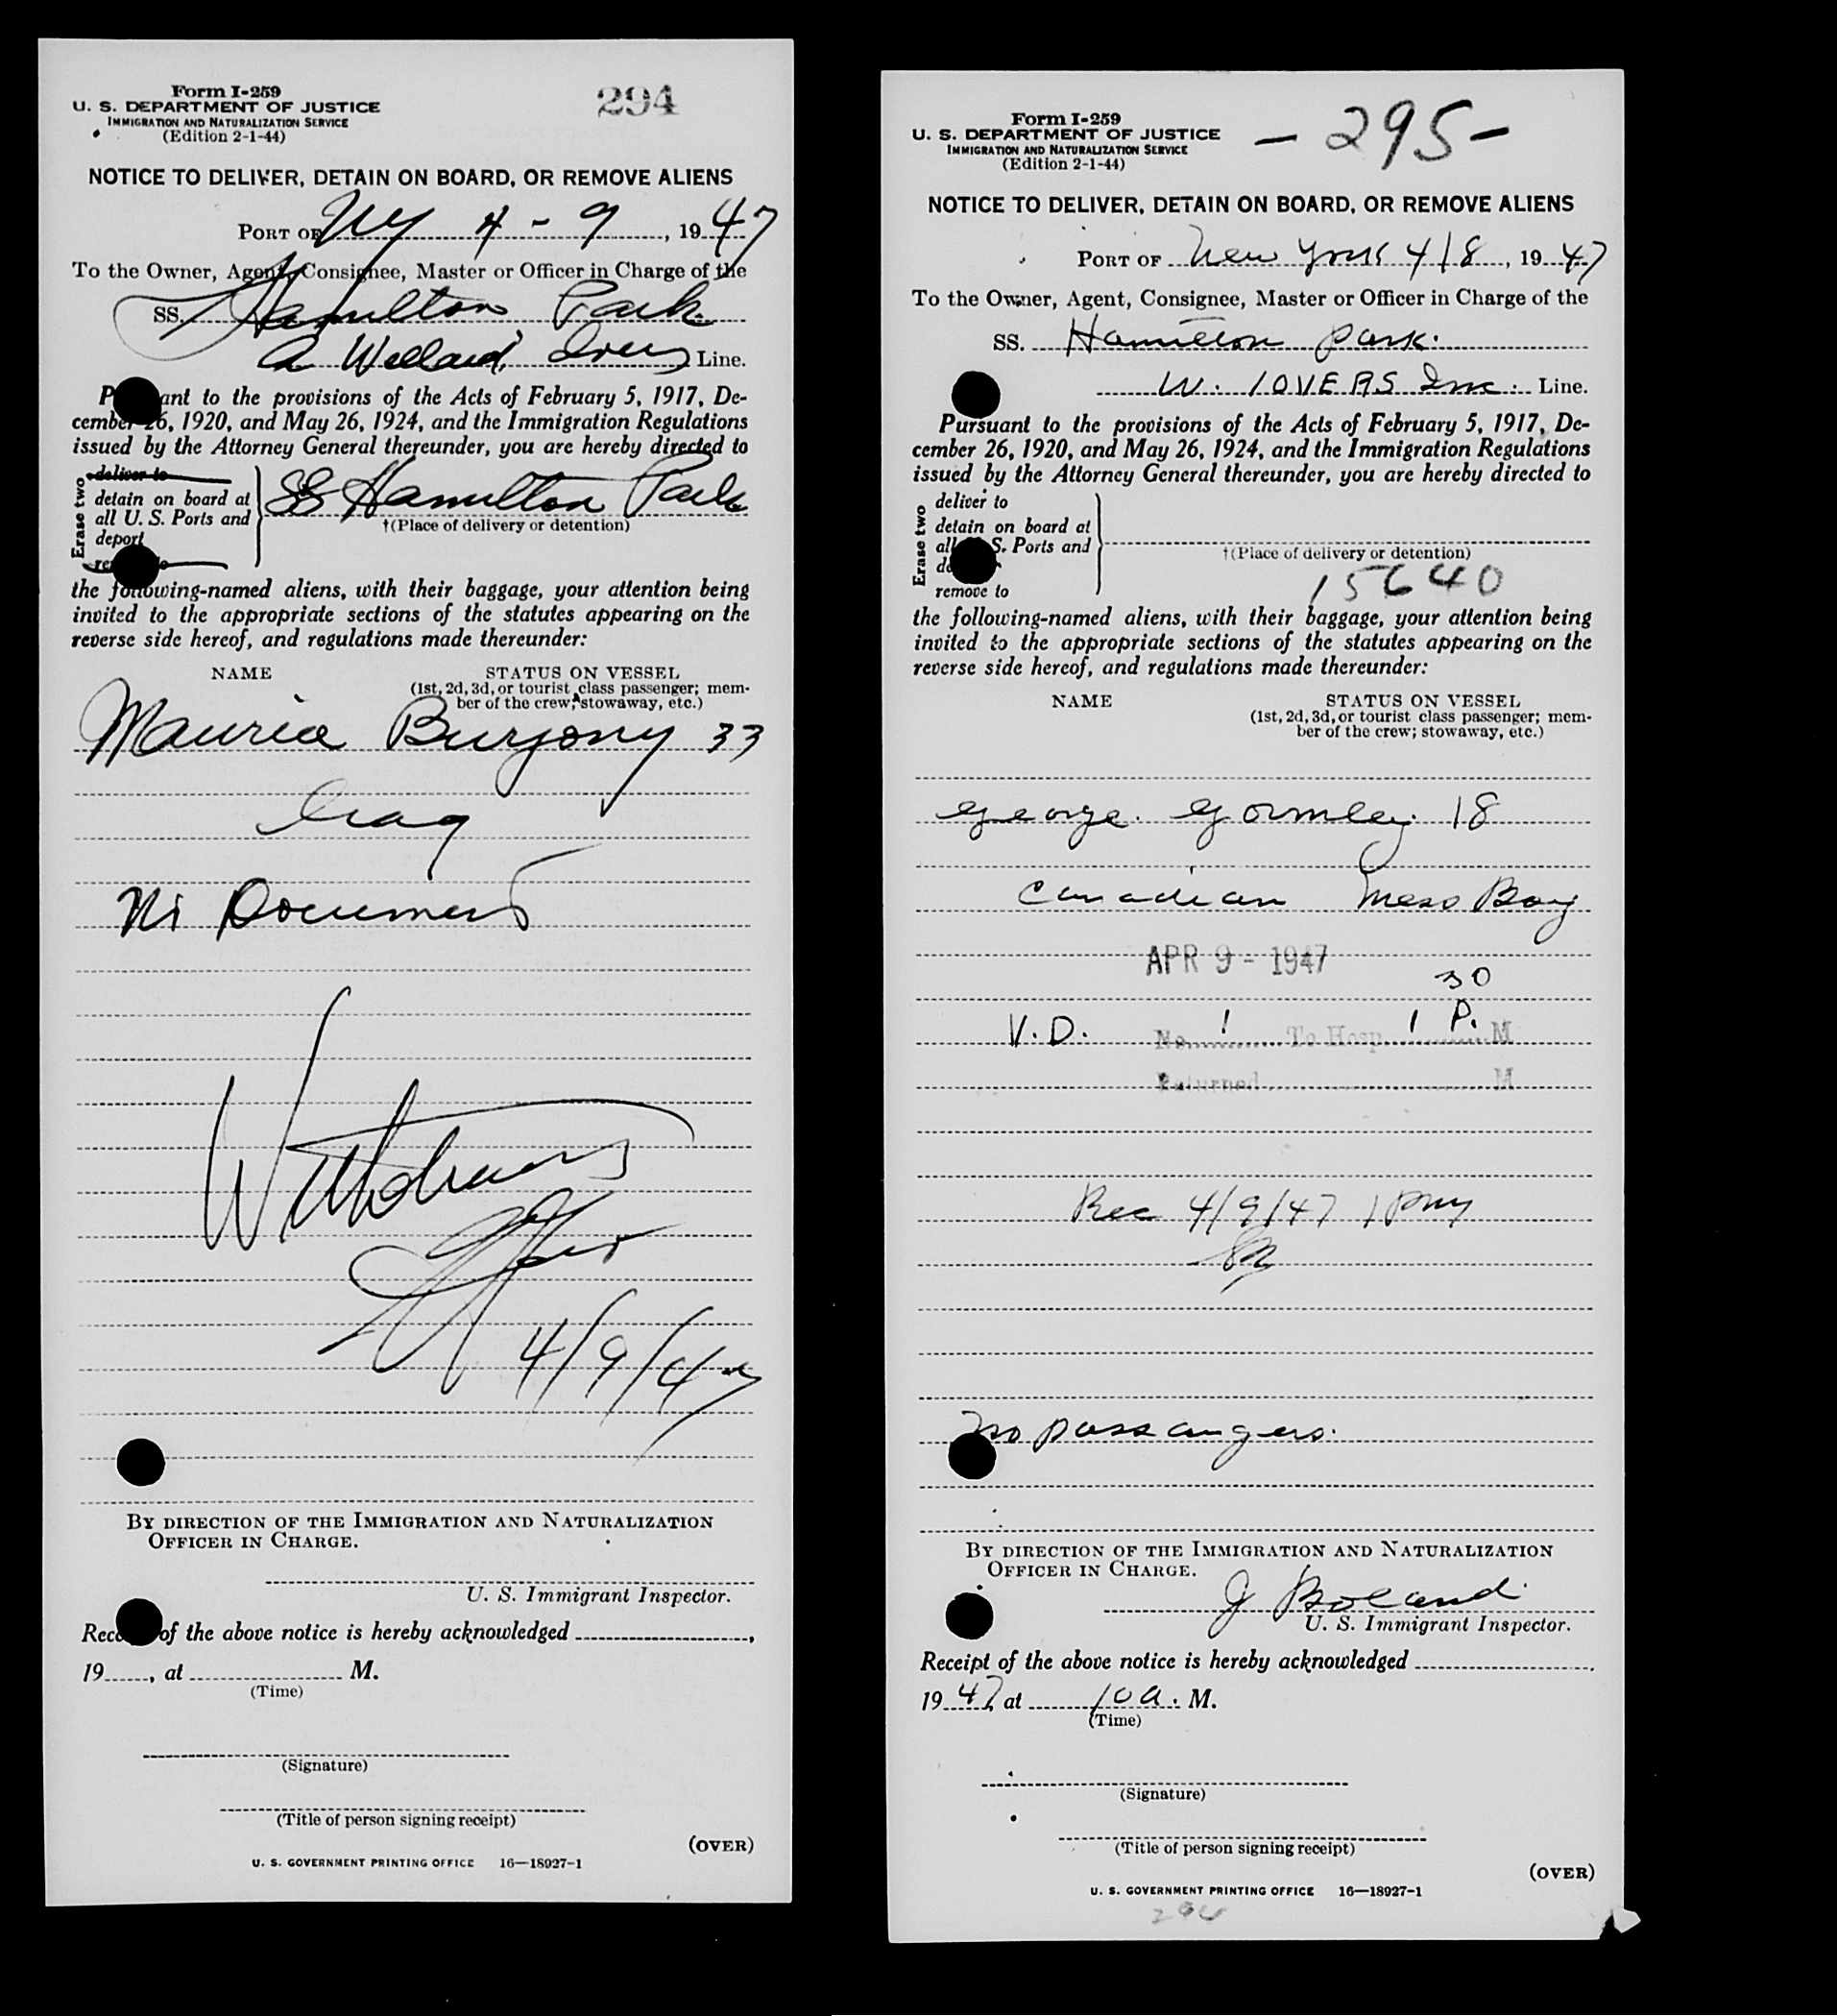 Form I-259
U. S. DEPARTMENT OF JUSTICE
IMMIGRATION AND NATURALIZATION SERVICE
(Edition 2-1-44)
294
NOTICE TO DELIVER, DETAIN ON BOARD, OR REMOVE ALIENS
PORT OF NY 4 - 9, 1947
To the Owner, Agent, Consignee, Master or Officer in Charge of the
SS. Hamilton Park
Line.
ant to the provisions of the Acts of February 5, 1917, De-
cember 26, 1920, and May 26, 1924, and the Immigration Regulations
issued by the Attorney General thereunder, you are hereby directed to
Erase two
deliver to
detain on board at
all U. S. Ports and
deport
SS Hamilton Park
†(Place of delivery or detention)
the following-named aliens, with their baggage, your attention being
invited to the appropriate sections of the statutes appearing on the
reverse side hereof, and regulations made thereunder:
NAME
STATUS ON VESSEL
(1st, 2d, 3d, or tourist class passenger; mem-
ber of the crew; stowaway, etc.)
Maurice Burjony 33
Iraq
Document
Withdrawn
4/9/47
BY DIRECTION OF THE IMMIGRATION AND NATURALIZATION
OFFICER IN CHARGE.
U. S. Immigrant Inspector.
of the above notice is hereby acknowledged ,
19 , at M.
(Time)
(Signature)
(Title of person signing receipt)
(OVER)
U. S. GOVERNMENT PRINTING OFFICE 16—18927-1
Form I-259
U. S. DEPARTMENT OF JUSTICE
IMMIGRATION AND NATURALIZATION SERVICE
(Edition 2-1-44)
- 295 -
NOTICE TO DELIVER, DETAIN ON BOARD, OR REMOVE ALIENS
PORT OF New York 4/8, 1947
To the Owner, Agent, Consignee, Master or Officer in Charge of the
SS. Hamilton Park.
W. IOVERS Inc. Line.
Pursuant to the provisions of the Acts of February 5, 1917, De-
cember 26, 1920, and May 26, 1924, and the Immigration Regulations
issued by the Attorney General thereunder, you are hereby directed to
Erase two
deliver to
detain on board at
S. Ports and
remove to
†(Place of delivery or detention)
15640
the following-named aliens, with their baggage, your attention being
invited to the appropriate sections of the statutes appearing on the
reverse side hereof, and regulations made thereunder:
NAME
STATUS ON VESSEL
(1st, 2d, 3d, or tourist class passenger; mem-
ber of the crew; stowaway, etc.)
George Gormley 18
Canadian Mess Boy
APR 9 - 1947
30
V.D. No. 1 To Hosp. 1 P. M
Returned M
Rec 4/9/47 1 PM
No passangers.
BY DIRECTION OF THE IMMIGRATION AND NATURALIZATION
OFFICER IN CHARGE.
J Boland
U. S. Immigrant Inspector.
Receipt of the above notice is hereby acknowledged ,
1947, at 10 a. M.
(Time)
(Signature)
(Title of person signing receipt)
(OVER)
U. S. GOVERNMENT PRINTING OFFICE 16—18927-1